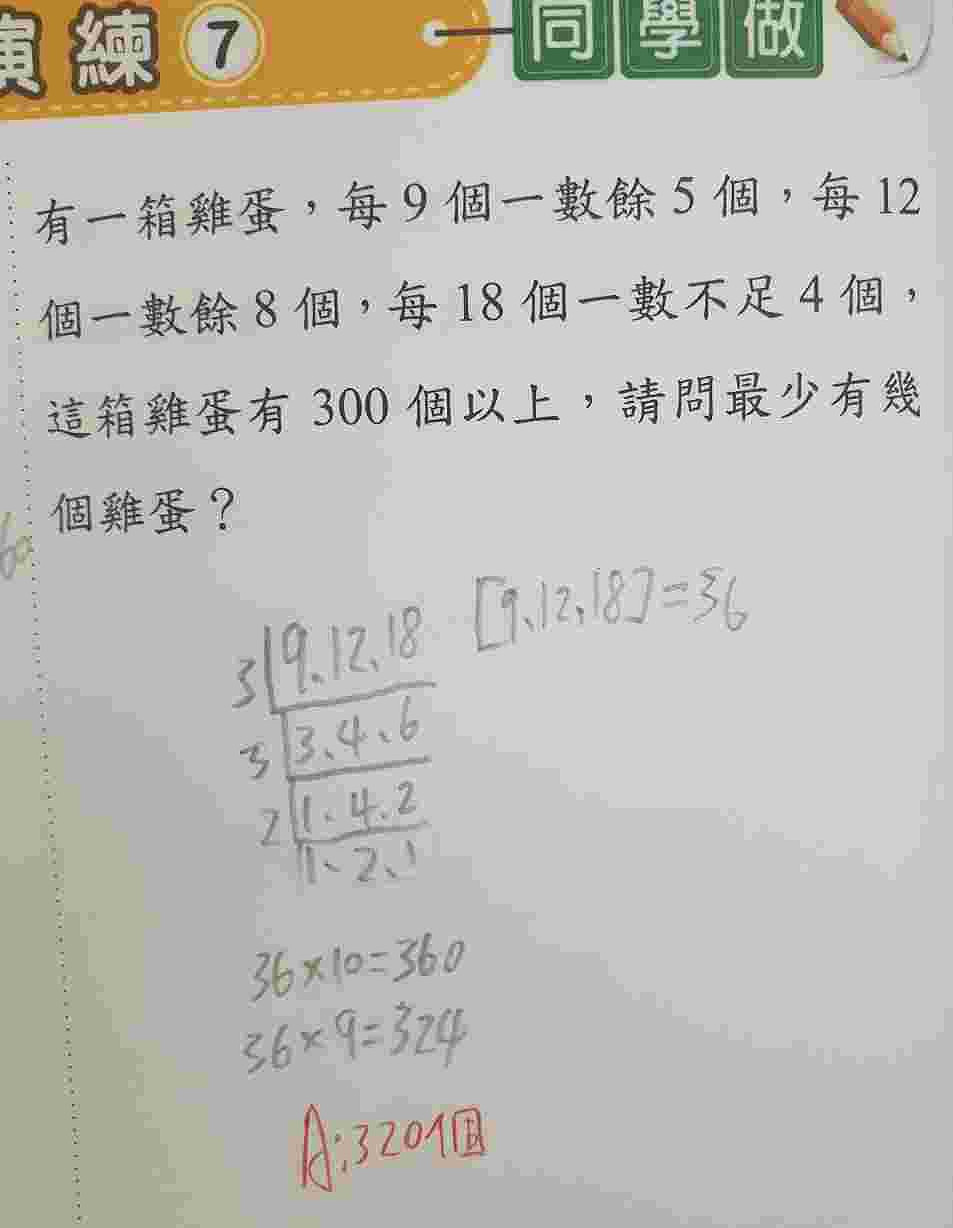 演練 7 同學做
有一箱雞蛋，每 9 個一數餘 5 個，每 12
個一數餘 8 個，每 18 個一數不足 4 個，
這箱雞蛋有 300 個以上，請問最少有幾
個雞蛋？
3 9、12、18 [9、12、18]=36
3 3、4、6
2 1、4、2
1、2、1
36×10=360
36×9=324
A:320個